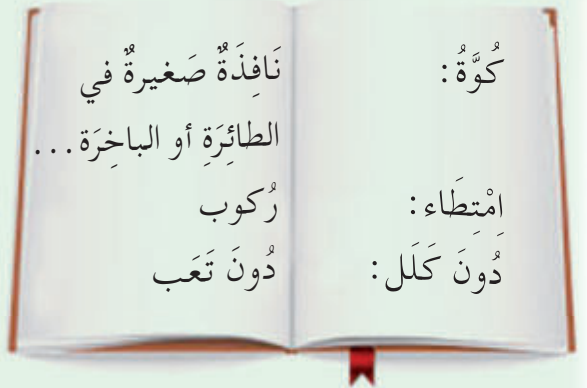 كُوَّةُ: نَافِذَةٌ صَغيرةٌ في
الطائِرَةِ أو الباخِرَة...
اِمْتِطَاء: رُكوب
دُونَ كَلَل: دُونَ تَعَب